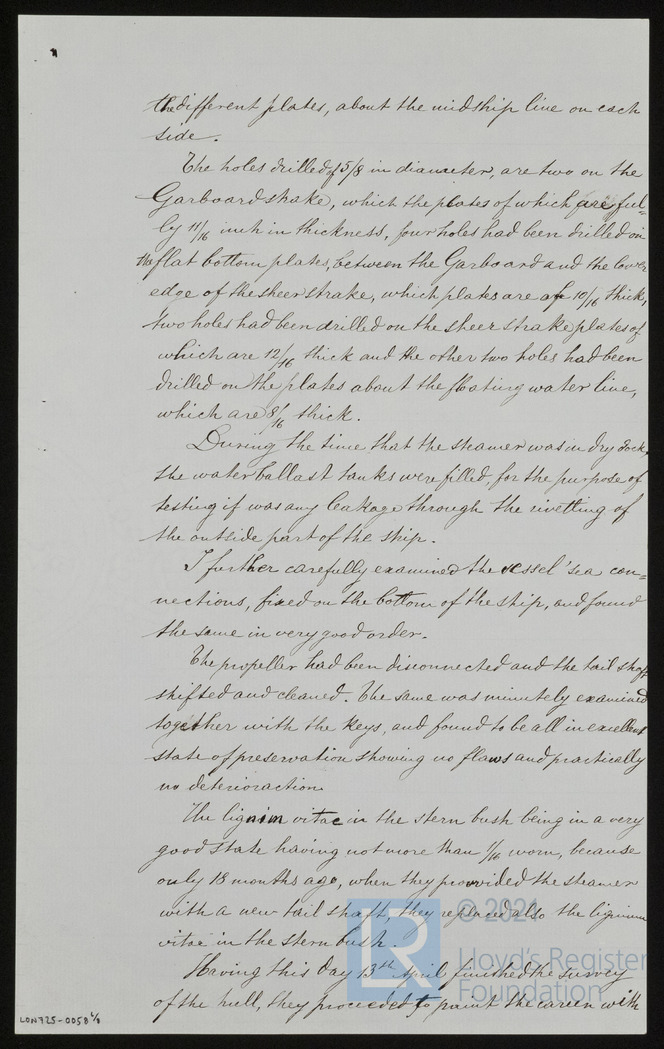 the different plates, about the midship line on each
side.
The holes drilled of 5/8 in diameter, are two on the
Garboard strake, which the plates of which are ful=
ly 11/16 inch in thickness, four holes had been drilled on
the flat bottom plates, between the Garboard and the lower
edge of the sheer strake, which plates are of 10/16 thick,
two holes had been drilled on the sheer strake plates of
which are 12/16 thick and the other two holes had been
drilled on the plates about the floating water line,
which are 8/16 thick.
During the time that the steamer was in dry dock,
the water ballast tanks were filled, for the purpose of
testing if was any leakage through the rivetting of
the outside part of the ship.
I further carefully examined the vessel' sea con=
nections, fixed on the bottom of the ship, and found
the same in very good order.
The propeller had been disconnected and the tail shaft
shifted and cleaned. The same was minutely examined
together with the keys, and found to be all in excellent
state of preservation showing no flaws and practically
no deterioraction.
The lignim vitae in the stern bush being in a very
good state having not more than 1/16 worn, because
only 18 months ago, when they prowided the steamer
with a new tail shaft, they replaced also the lignum
vitae in the stern bush.
Having this day 13th April finished the survey
of the hull, they proceeded to paint the careen with
LON725-0058 L/8
LR
© 2021
Lloyd's Register
Foundation